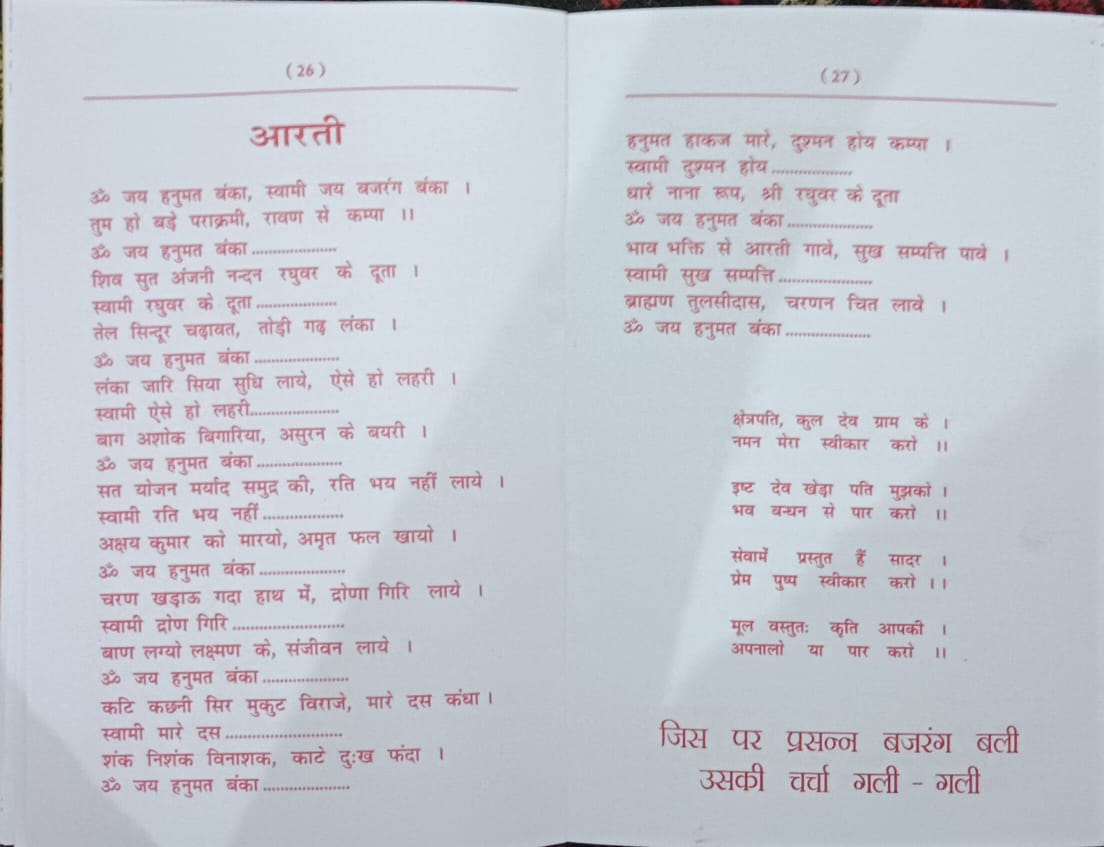 (26)
आरती
ॐ जय हनुमत बंका, स्वामी जय बजरंग बंका ।
तुम हो बड़े पराक्रमी, रावण से कम्पा ।।
ॐ जय हनुमत बंका....................
शिव सुत अंजनी नन्दन रघुवर के दूता ।
स्वामी रघुवर के दूता...................
तेल सिन्दूर चढ़ावत, तोड़ी गढ़ लंका ।
ॐ जय हनुमत बंका....................
लंका जारि सिया सुधि लाये, ऐसे हो लहरी ।
स्वामी ऐसे हो लहरी.....................
बाग अशोक बिगारिया, असुरन के बयरी ।
ॐ जय हनुमत बंका....................
सत योजन मर्याद समुद्र की, रति भय नहीं लाये ।
स्वामी रति भय नहीं...................
अक्षय कुमार को मारयो, अमृत फल खायो ।
ॐ जय हनुमत बंका....................
चरण खड़ाऊ गदा हाथ में, द्रोणा गिरि लाये ।
स्वामी द्रोण गिरि..........................
बाण लग्यो लक्ष्मण के, संजीवन लाये ।
ॐ जय हनुमत बंका....................
कटि कछनी सिर मुकुट विराजे, मारे दस कंधा ।
स्वामी मारे दस...........................
शंक निशंक विनाशक, काटे दुःख फंदा ।
ॐ जय हनुमत बंका....................
(27)
हनुमत हाकज मारे, दुश्मन होय कम्पा ।
स्वामी दुश्मन होय...................
धारे नाना रूप, श्री रघुवर के दूता
ॐ जय हनुमत बंका....................
भाव भक्ति से आरती गावे, सुख सम्पत्ति पावे ।
स्वामी सुख सम्पत्ति......................
ब्राह्मण तुलसीदास, चरणन चित लावे ।
ॐ जय हनुमत बंका....................
क्षेत्रपति, कुल देव ग्राम के ।
नमन मेरा स्वीकार करो ।।
इष्ट देव खेड़ा पति मुझको ।
भव बन्धन से पार करो ।।
सेवामें प्रस्तुत हैं सादर ।
प्रेम पुष्प स्वीकार करो ।।
मूल वस्तुतः कृति आपकी ।
अपनालो या पार करो ।।
जिस पर प्रसन्न बजरंग बली
उसकी चर्चा गली - गली